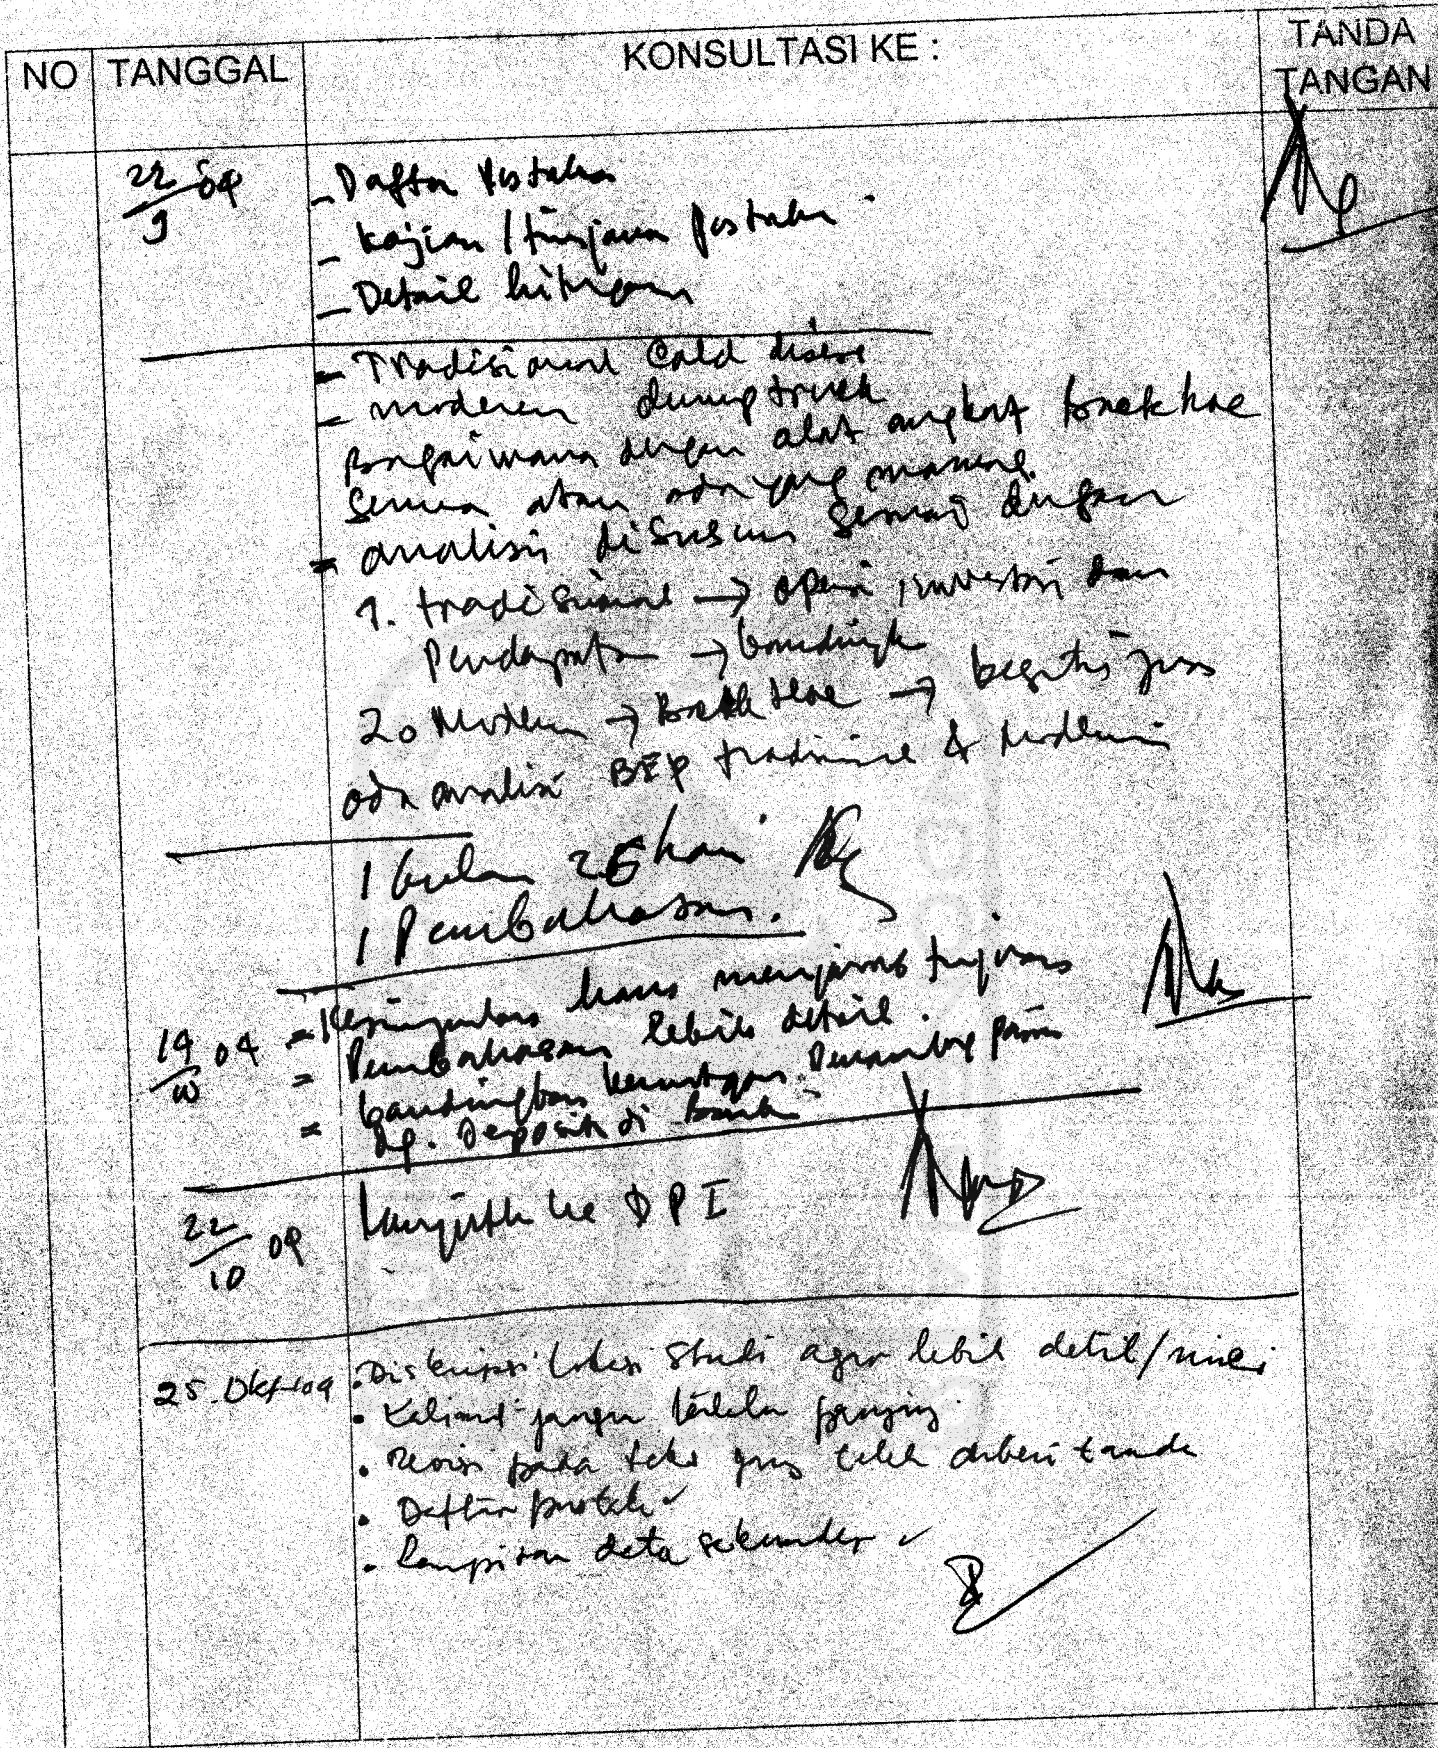 NO TANGGAL KONSULTASI KE : TANDA TANGAN
22/9 04 - Daftar Pustaka
- Kajian / tinjauan pustaka
- Detail hitungan
- Tradisional
- moderen dump truck
Bagaimana dengan alat angkat backhoe
Semua atau ada yang manual.
= analisis disusun sesuai dengan
1. tradisional → operasi, investasi dan
Pendapatan →
2. Modern → Backhoe → begitu juga
ada analisis BEP tradisional & modern
1 bulan 25 hari
1 Pembahasan.
14/10 04 = Kesimpulan harus menjawab tujuan
= Pembahasan lebih detail.
= bandingkan keuntungan Penambang pasir
dg. Deposito di bank
22/10 04 Lanjutkan ke DP I
25.Okt-04 . Diskripsi lokasi studi agar lebih detil/rinci
. Kalimat jangan terlalu panjang.
. Revisi pada teks yang telah diberi tanda
. Daftar pustaka ✓
. Lampiran data sekunder ✓